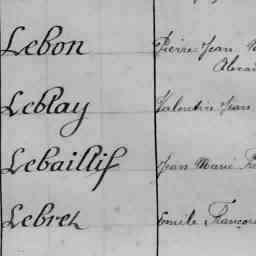 Lebon Pierre Jean
Leblay Valentin Jean
Lebaillif Jean Marie
Lebret Emile François